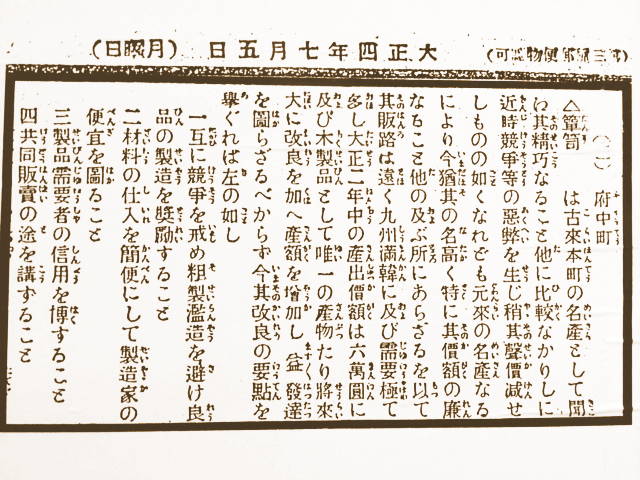 （第三種郵便物認可）
大正四年七月五日
（月曜日）
（二）府中町
△簞笥　は古來本町の名産として聞
え其精巧なること他に比較なかりしに
近時競爭等の惡弊を生じ稍其聲價减せ
しものの如くなれども元來の名產なる
により今猶其の名高く特に其價額の廉
なること他の及ぶ所にあらざるを以て
其販路は遠く九州滿韓に及び需要極て
多し大正二年中の產出價額は六萬圓に
及び木製品として唯一の產物たり將來
大に改良を加へ產額を增加し益發達
を圖らざるべからず今其改良の要點を
擧ぐれば左の如し
一互に競爭を戒め粗製濫造を避け良
品の製造を奬勵すること
二材料の仕入を簡便にして製造家の
便宜を圖ること
三製品需要者の信用を博すること
四共同販賣の途を講ずること